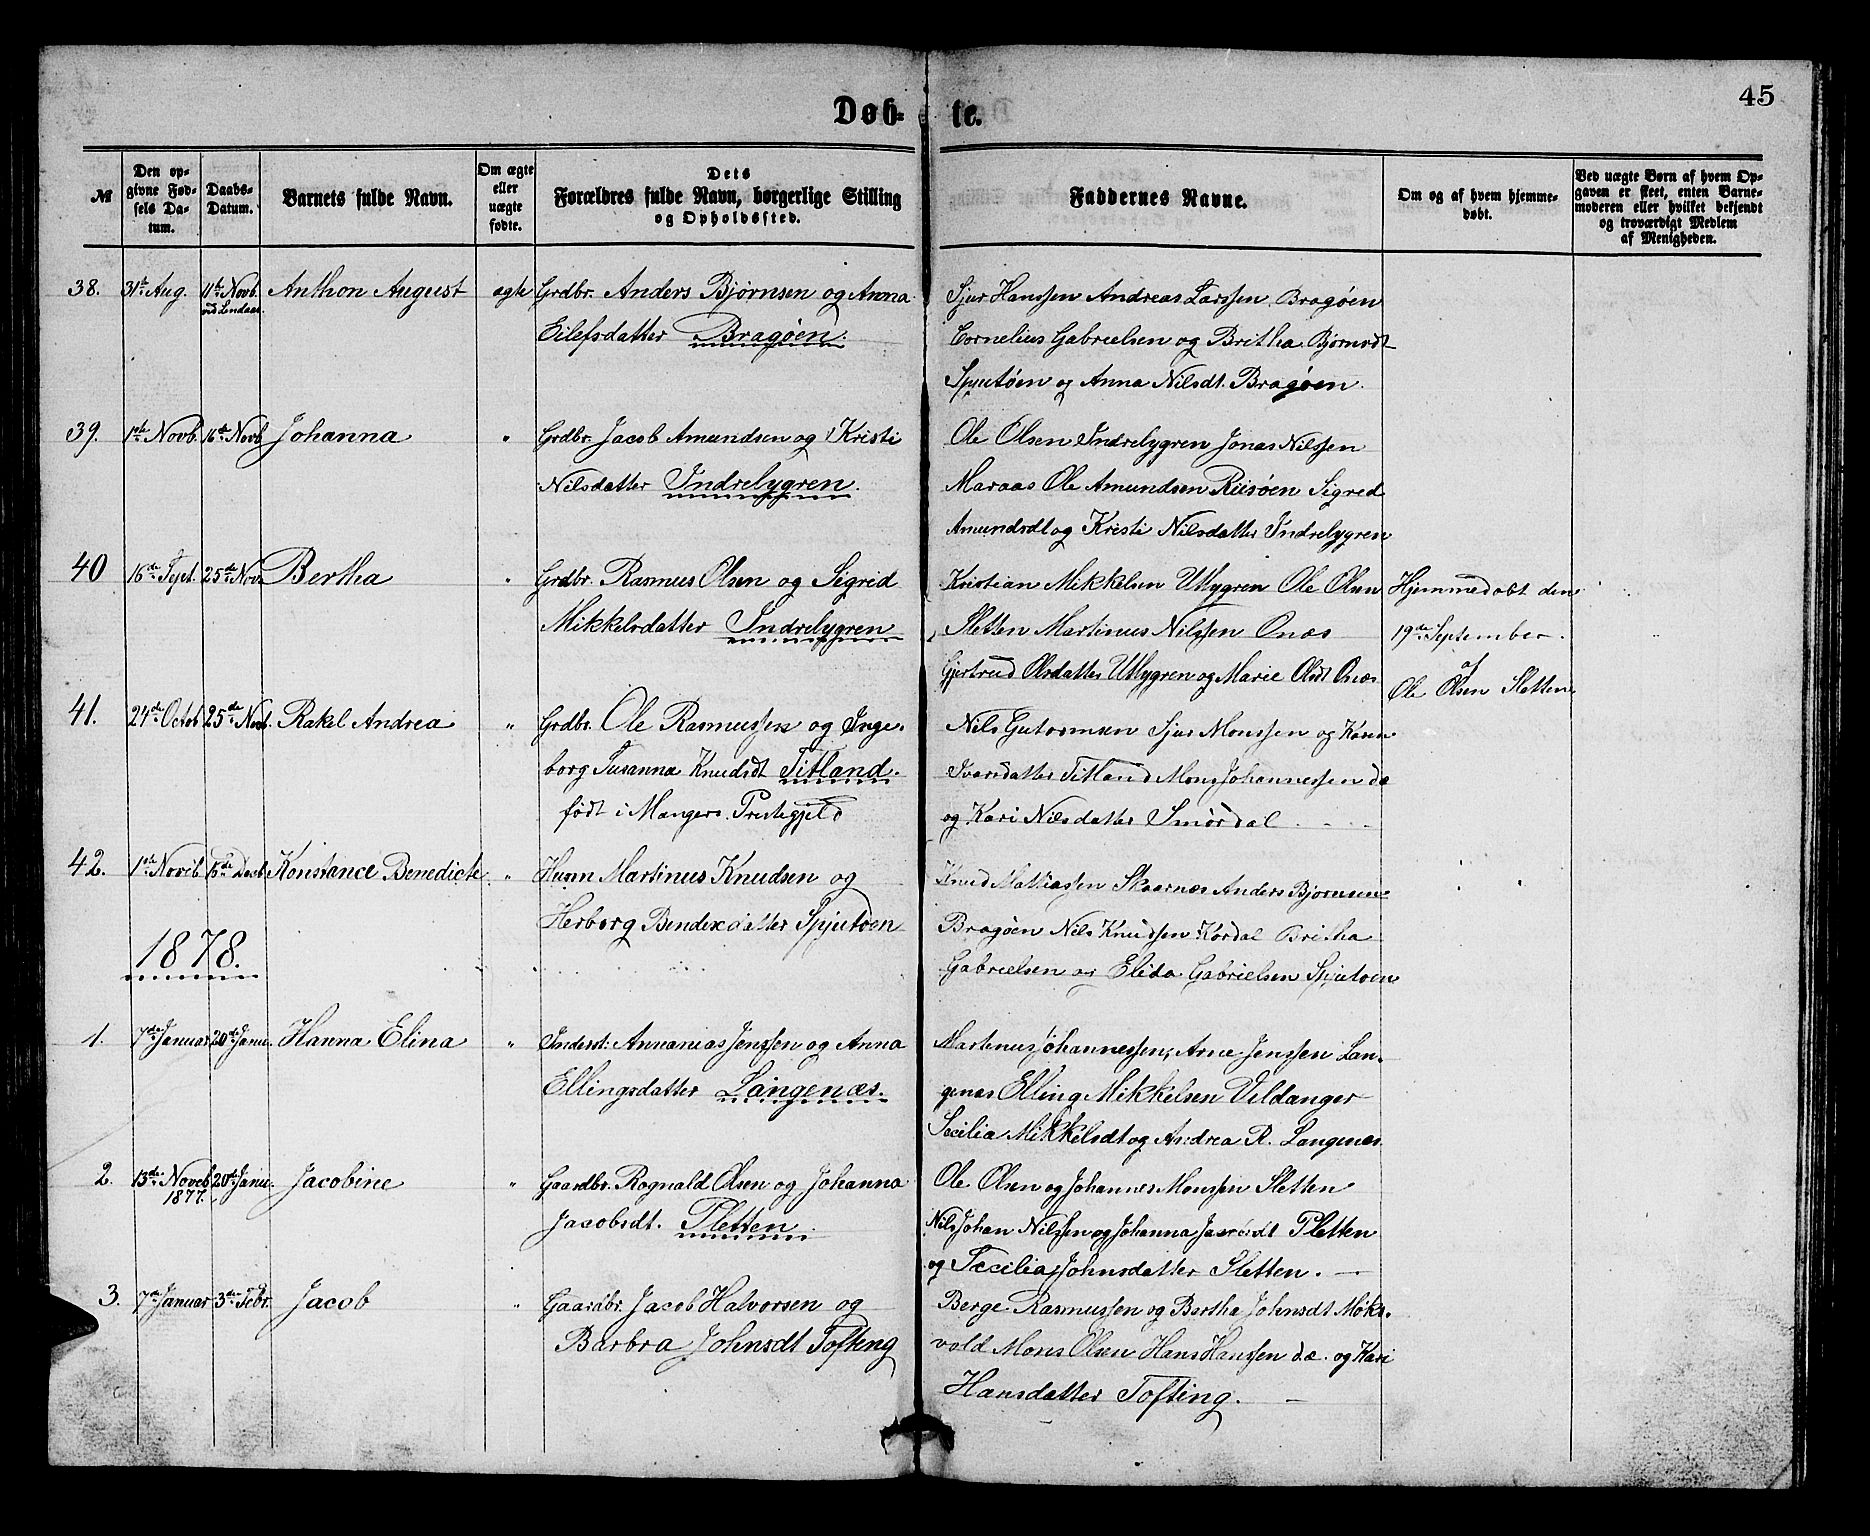 45
Døb- te.
№
Den opgivne Fødsels Datum.
Daabs-Datum.
Barnets fulde Navn.
Om ægte eller uægte fødte.
Dets Forældres fulde Navn, borgerlige Stilling og Opholdssted.
Faddernes Navne.
Om og af hvem hjemmedøbt.
Ved uægte Børn af hvem Opgaven er skeet, enten Barnemoderen eller hvilket bekjendt og troværdigt Medlem af Menigheden.
38. 31te Aug. 11te Novb. Anthon August ægte Grdbr. Anders Bjørnsen og Anna
ved Lindaas.
Eilefsdatter Bragøen.
Sjur Hanssen Andreas Larssen Bragøen
Cornelius Gabrielsen og Britha Bjørnsdt
Spjutøen og Anna Nilsdt. Bragøen.
39. 1ste Novb. 16de Novb Johanna " Grdbr. Jacob Amundsen og Kristi
Nilsdatter Indrelygren.
Ole Olsen Indrelygren Jonas Nilssen
Maraas Ole Amundsen Riisøen Sigred
Amundsdt og Kristi Nilsdatter Indrelygren
40 16de Sept. 25de Nov. Bertha " Grdbr. Rasmus Olsen og Sigrid
Mikkelsdatter Indrelygren
Kristian Mikkelsen Utlygren Ole Olsen
Sletten Martinus Nilssen Onæs
Gjertrud Olsdatter Utlygren og Marie Olsdt Onæs
Hjemmedøbt den
19de September
af
Ole Olsen Sletten
41. 24de Octob 25de Novb. Rakel Andrea " Grdbr. Ole Rasmussen og Inge-
borg Susanna Knudsdt Titland.
født i Mangers Prestegjeld
Nils Gutormsen Sjur Monssen og Karen
Ivarsdatter Titland Mons Johannessen dæ
og Kari Nilsdatter Smørdal
42. 1ste Novb. 15de Decb Konstance Benedicte " Husm Martinus Knudsen og
Herborg Bendixdatter Spjutøen
Knud Mathiassen Skaarnæs Anders Bjørnsen
Bragøen Nils Knudssen Kordal Britha
Gabrielsen og Elida Gabrielsen Spjutøen
1878.
1. 7de Januar 20de Janu. Hanna Elina " Inderst: Annanias Jenssen og Anna
Ellingsdatter Langenæs.
Martinus Johannessen, Arne Jenssen Lan-
genæs Elling Mikkelsen Vildanger
Secilia Mikkelsdt og Andrea R. Langenæs
2. 13de Noveb 20de Janu. Jacobine " Gaardbr. Rognald Olsen og Johanna
1877.
Jacobsdt. Pletten.
Ole Olsen og Johannes Monssen Sletten
Nils Johan Nilssen og Johanna Jacobsdt Pletten
og Secilia Johnsdatter Sletten.
3. 7de Januar 3de Febr. Jacob " Gaardbr. Jacob Halvorsen og
Barbra Johnsdt Tofting
Berge Rasmussen og Bertha Johnsdt Møks-
vold Mons Olsen Hans Hanssen d.æ. og Kari
Hansdatter Tofting.